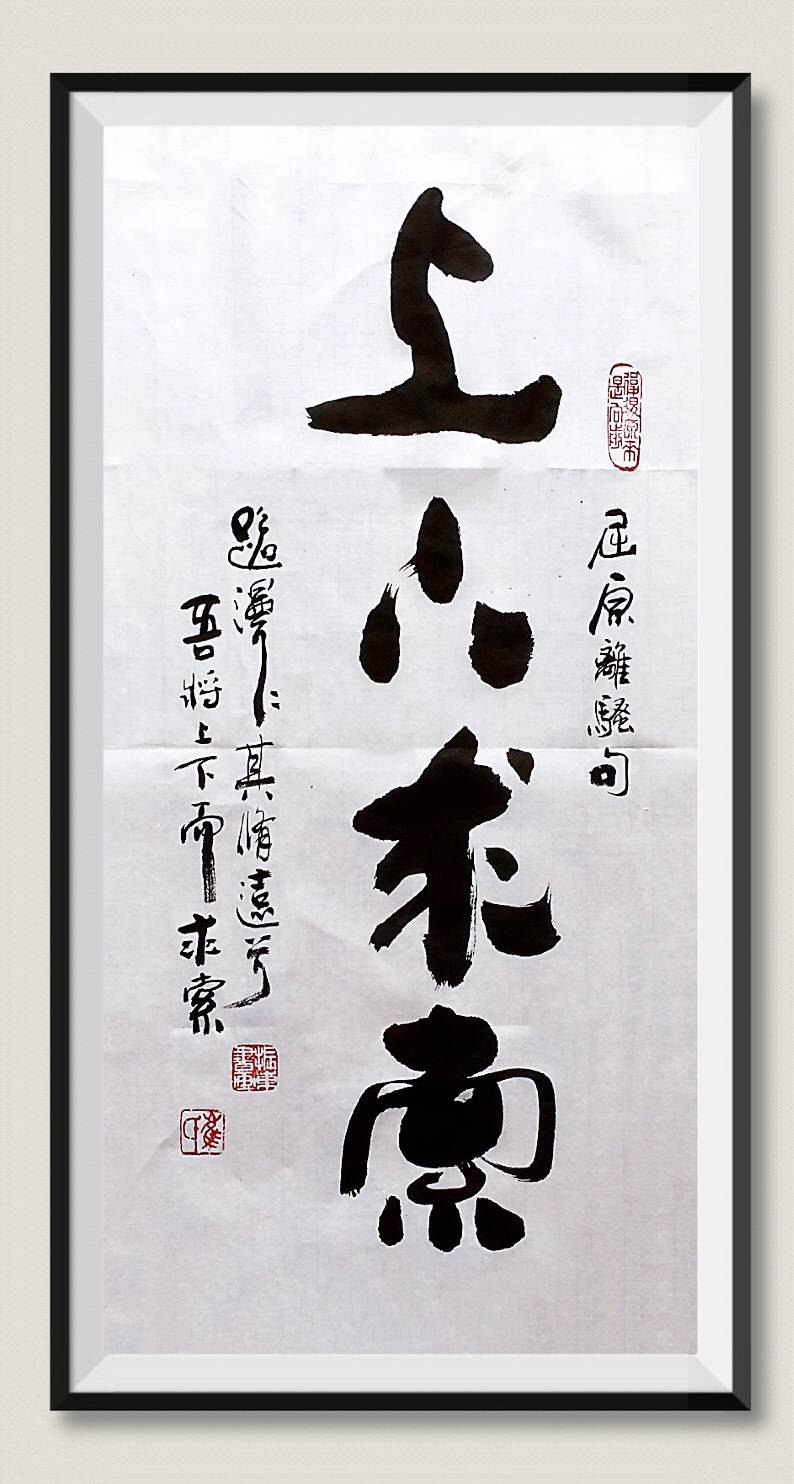 屈原離騷句
上下求索
路漫〻其脩遠兮
吾將上下而求索